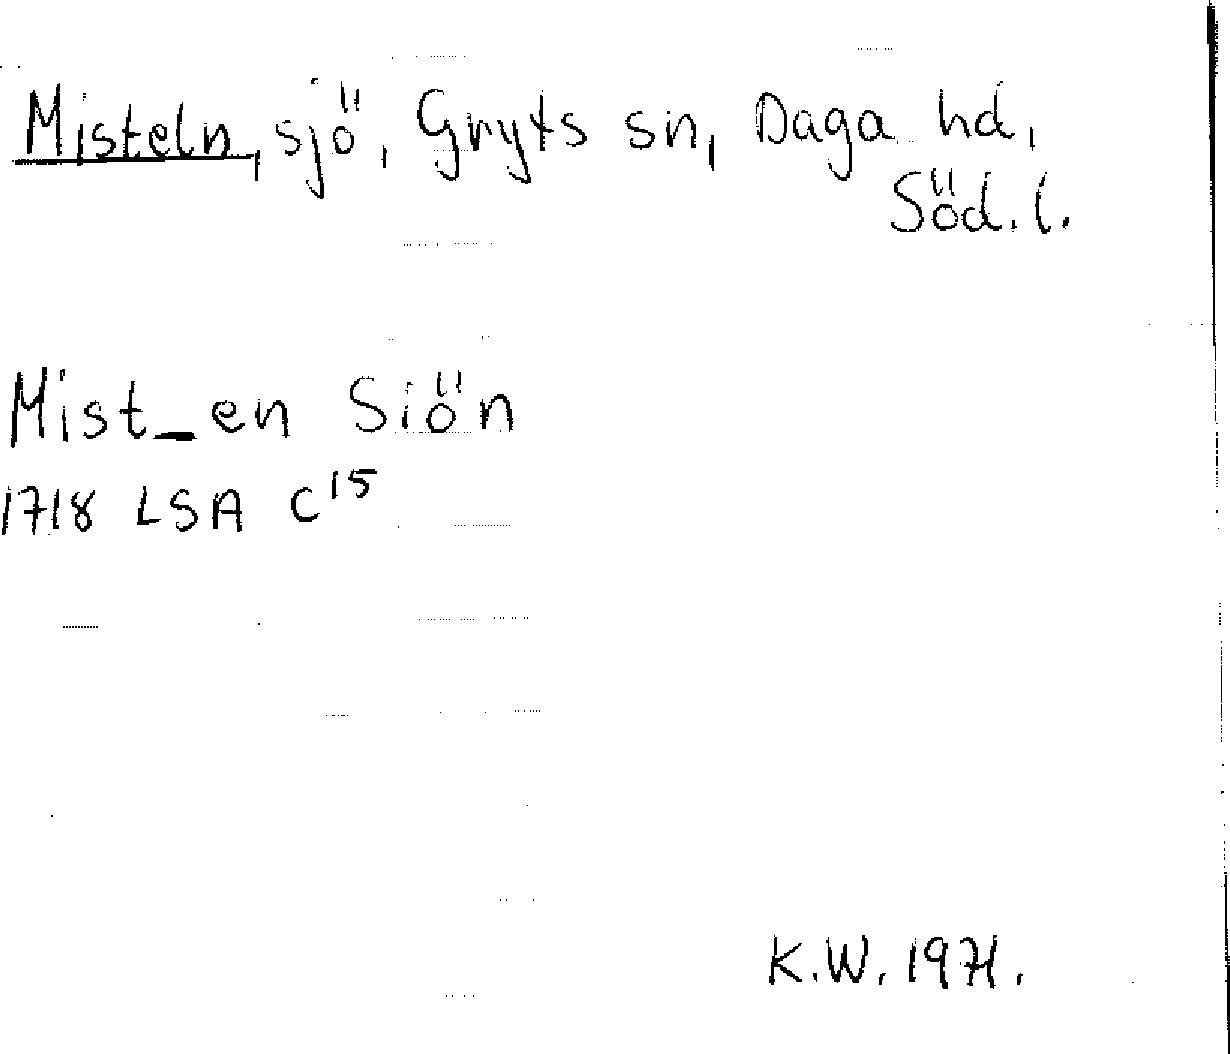 Misteln, sjö, Gryts sn, Daga hd,
Söd. l.
Mist_en Siön
1718 LSA C15
K.W. 1971.